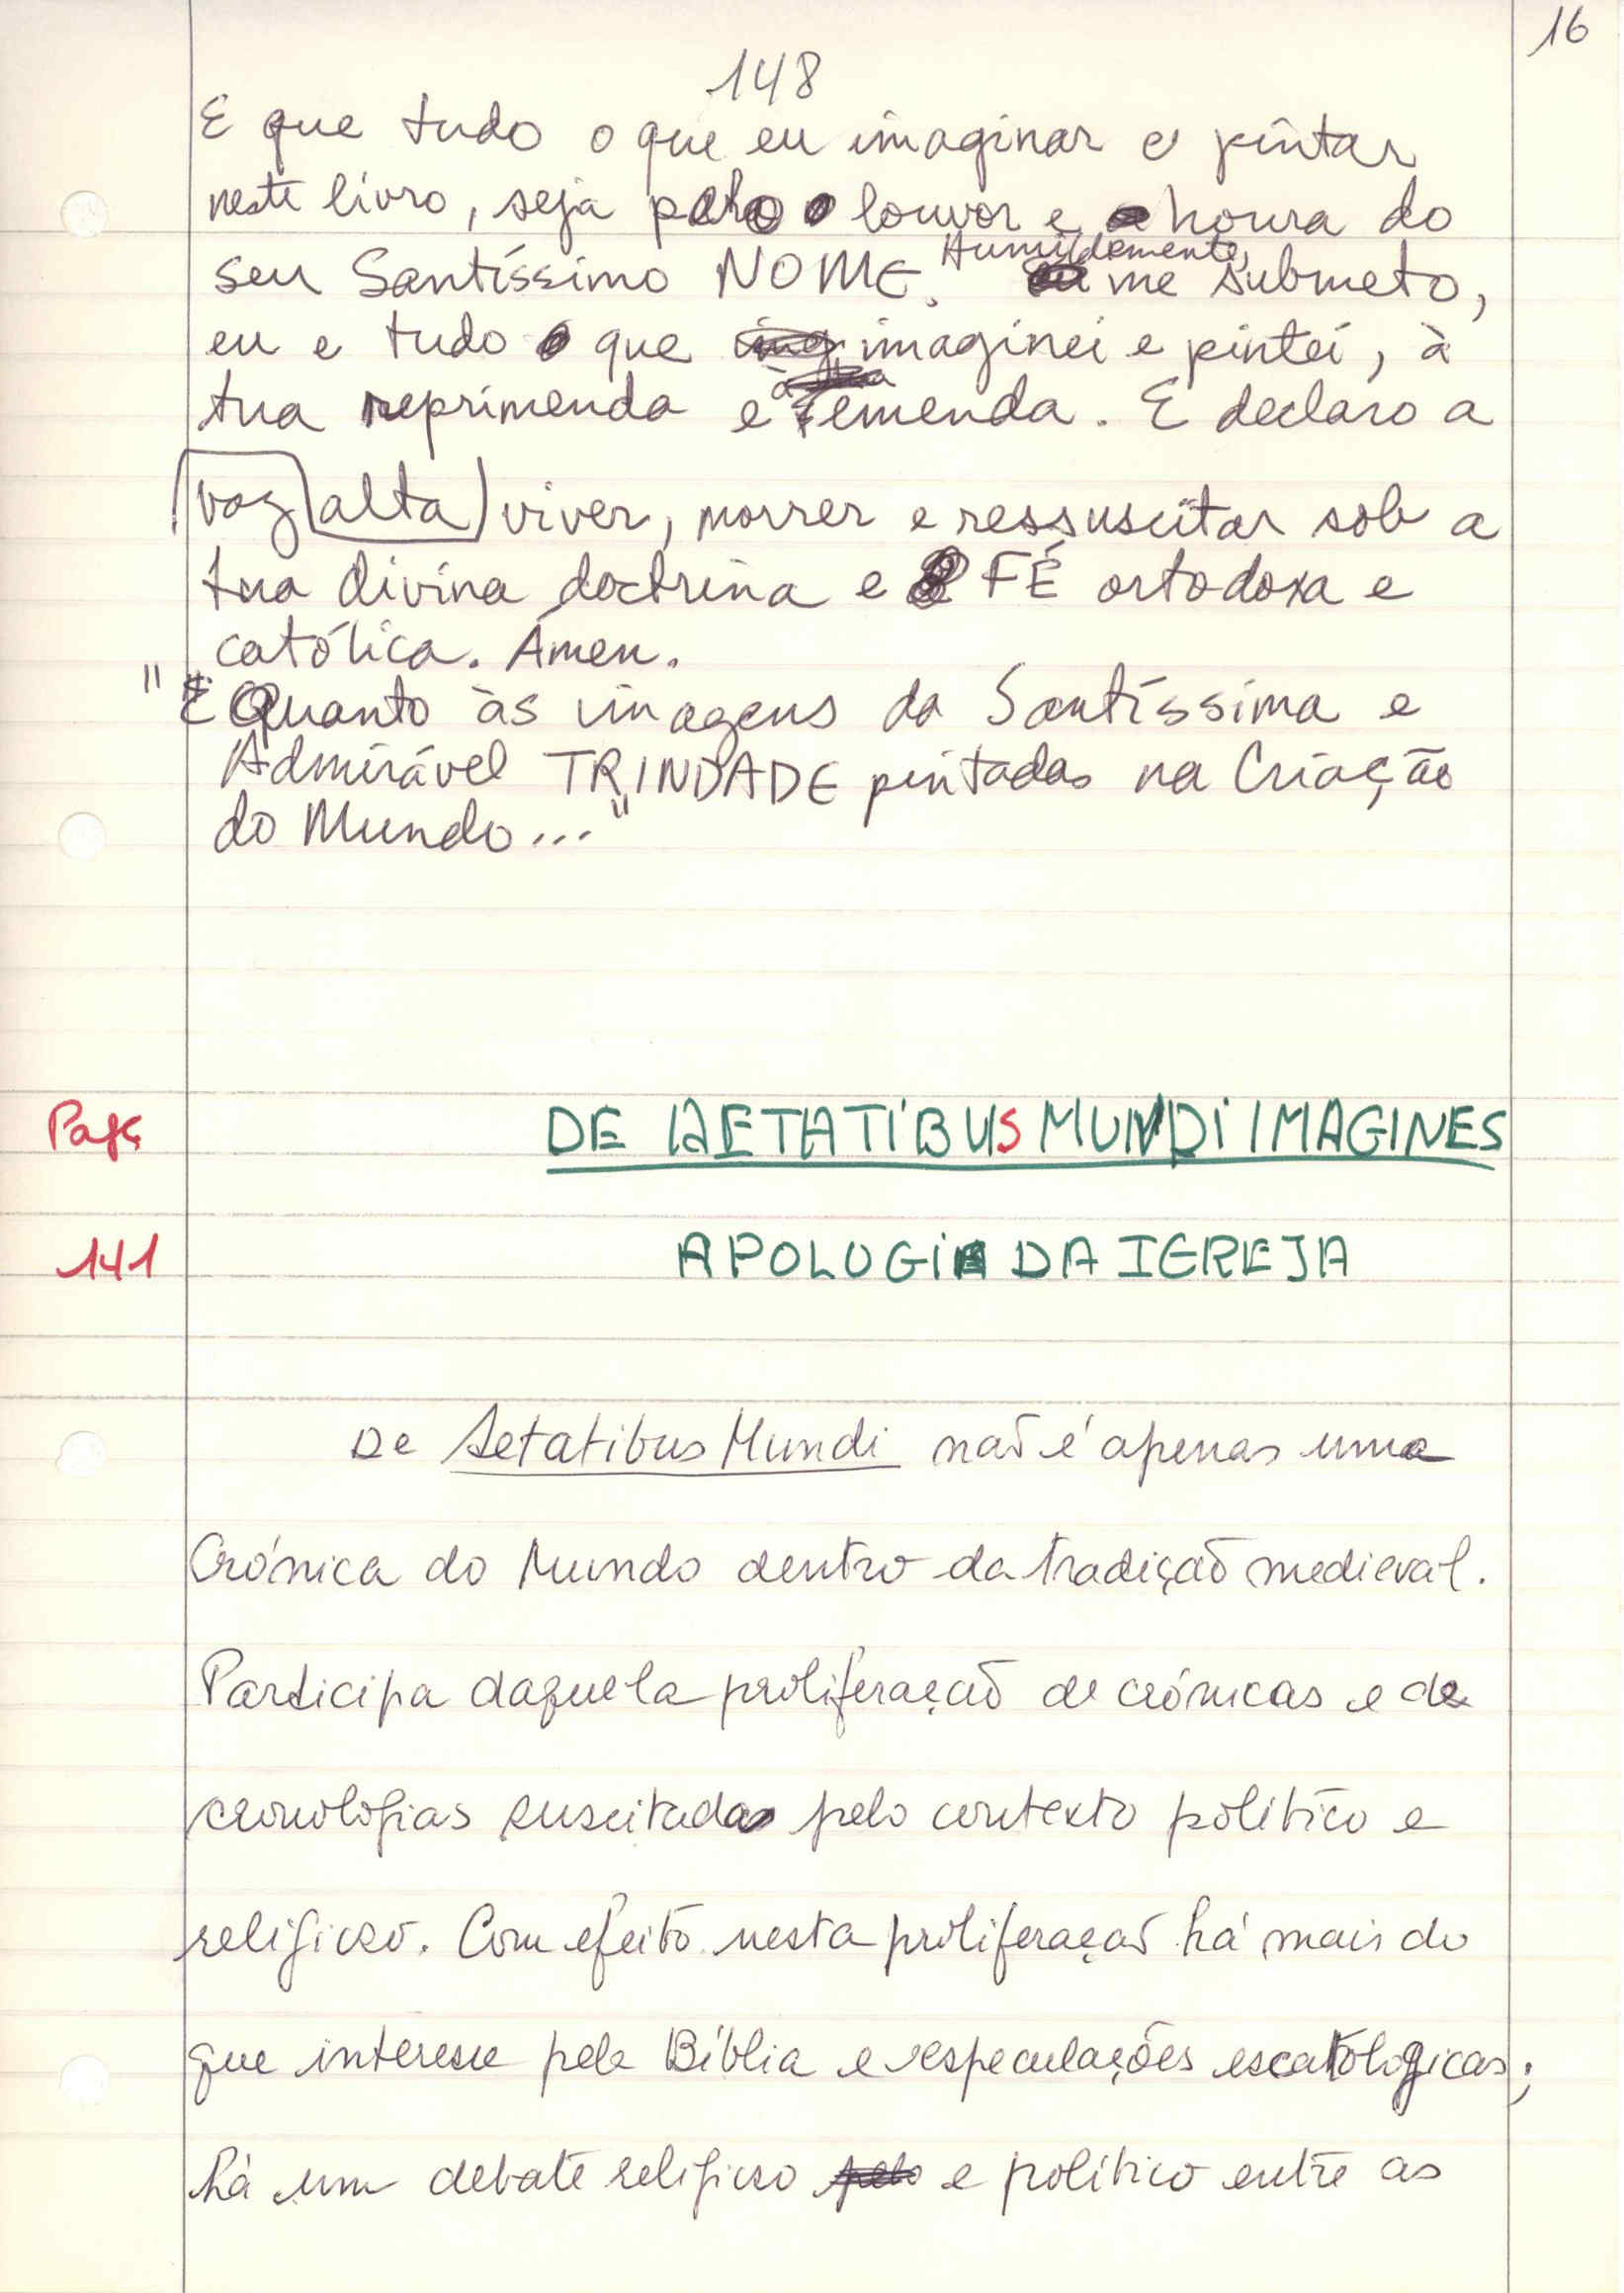 16
148
E que tudo o que eu imaginar e pintar
neste livro, seja para louvor e honra do
seu Santíssimo NOME. Humildemente, me submeto,
eu e tudo o que imaginei e pintei, à
tua reprimenda e à emenda. E declaro a
alta voz viver, morrer e ressuscitar sob a
tua divina doctrina e FÉ ortodoxa e
católica. Ámen.
" Quanto às imagens da Santíssima e
Admirável TRINDADE pintadas na Criação
do Mundo..."
Pag
DE AETATIBUS MUNDI IMAGINES
141
APOLOGIA DA IGREJA
De Aetatibus Mundi não é apenas uma
Crónica do Mundo dentro da tradição medieval.
Participa daquela proliferação de crónicas e de
cronologias suscitadas pelo contexto político e
religioso. Com efeito nesta proliferação há mais do
que interesse pela Bíblia e especulações escatologicas;
há um debate religioso e político entre as